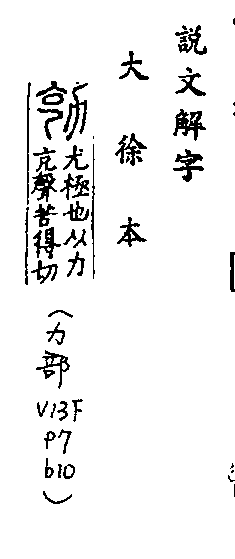 説文解字
大徐本
勊
尤極也从力
克聲苦得切
(力部
V13F
P7
b10)